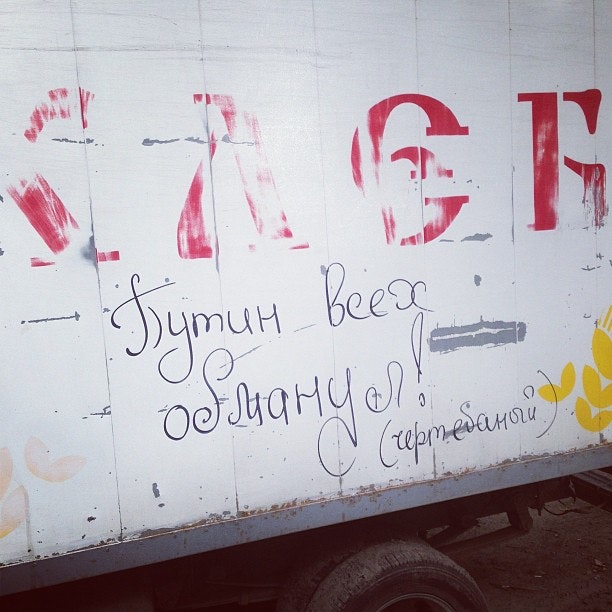 ХЛЕБ
Путин всех
обманул!
(чертебаный)